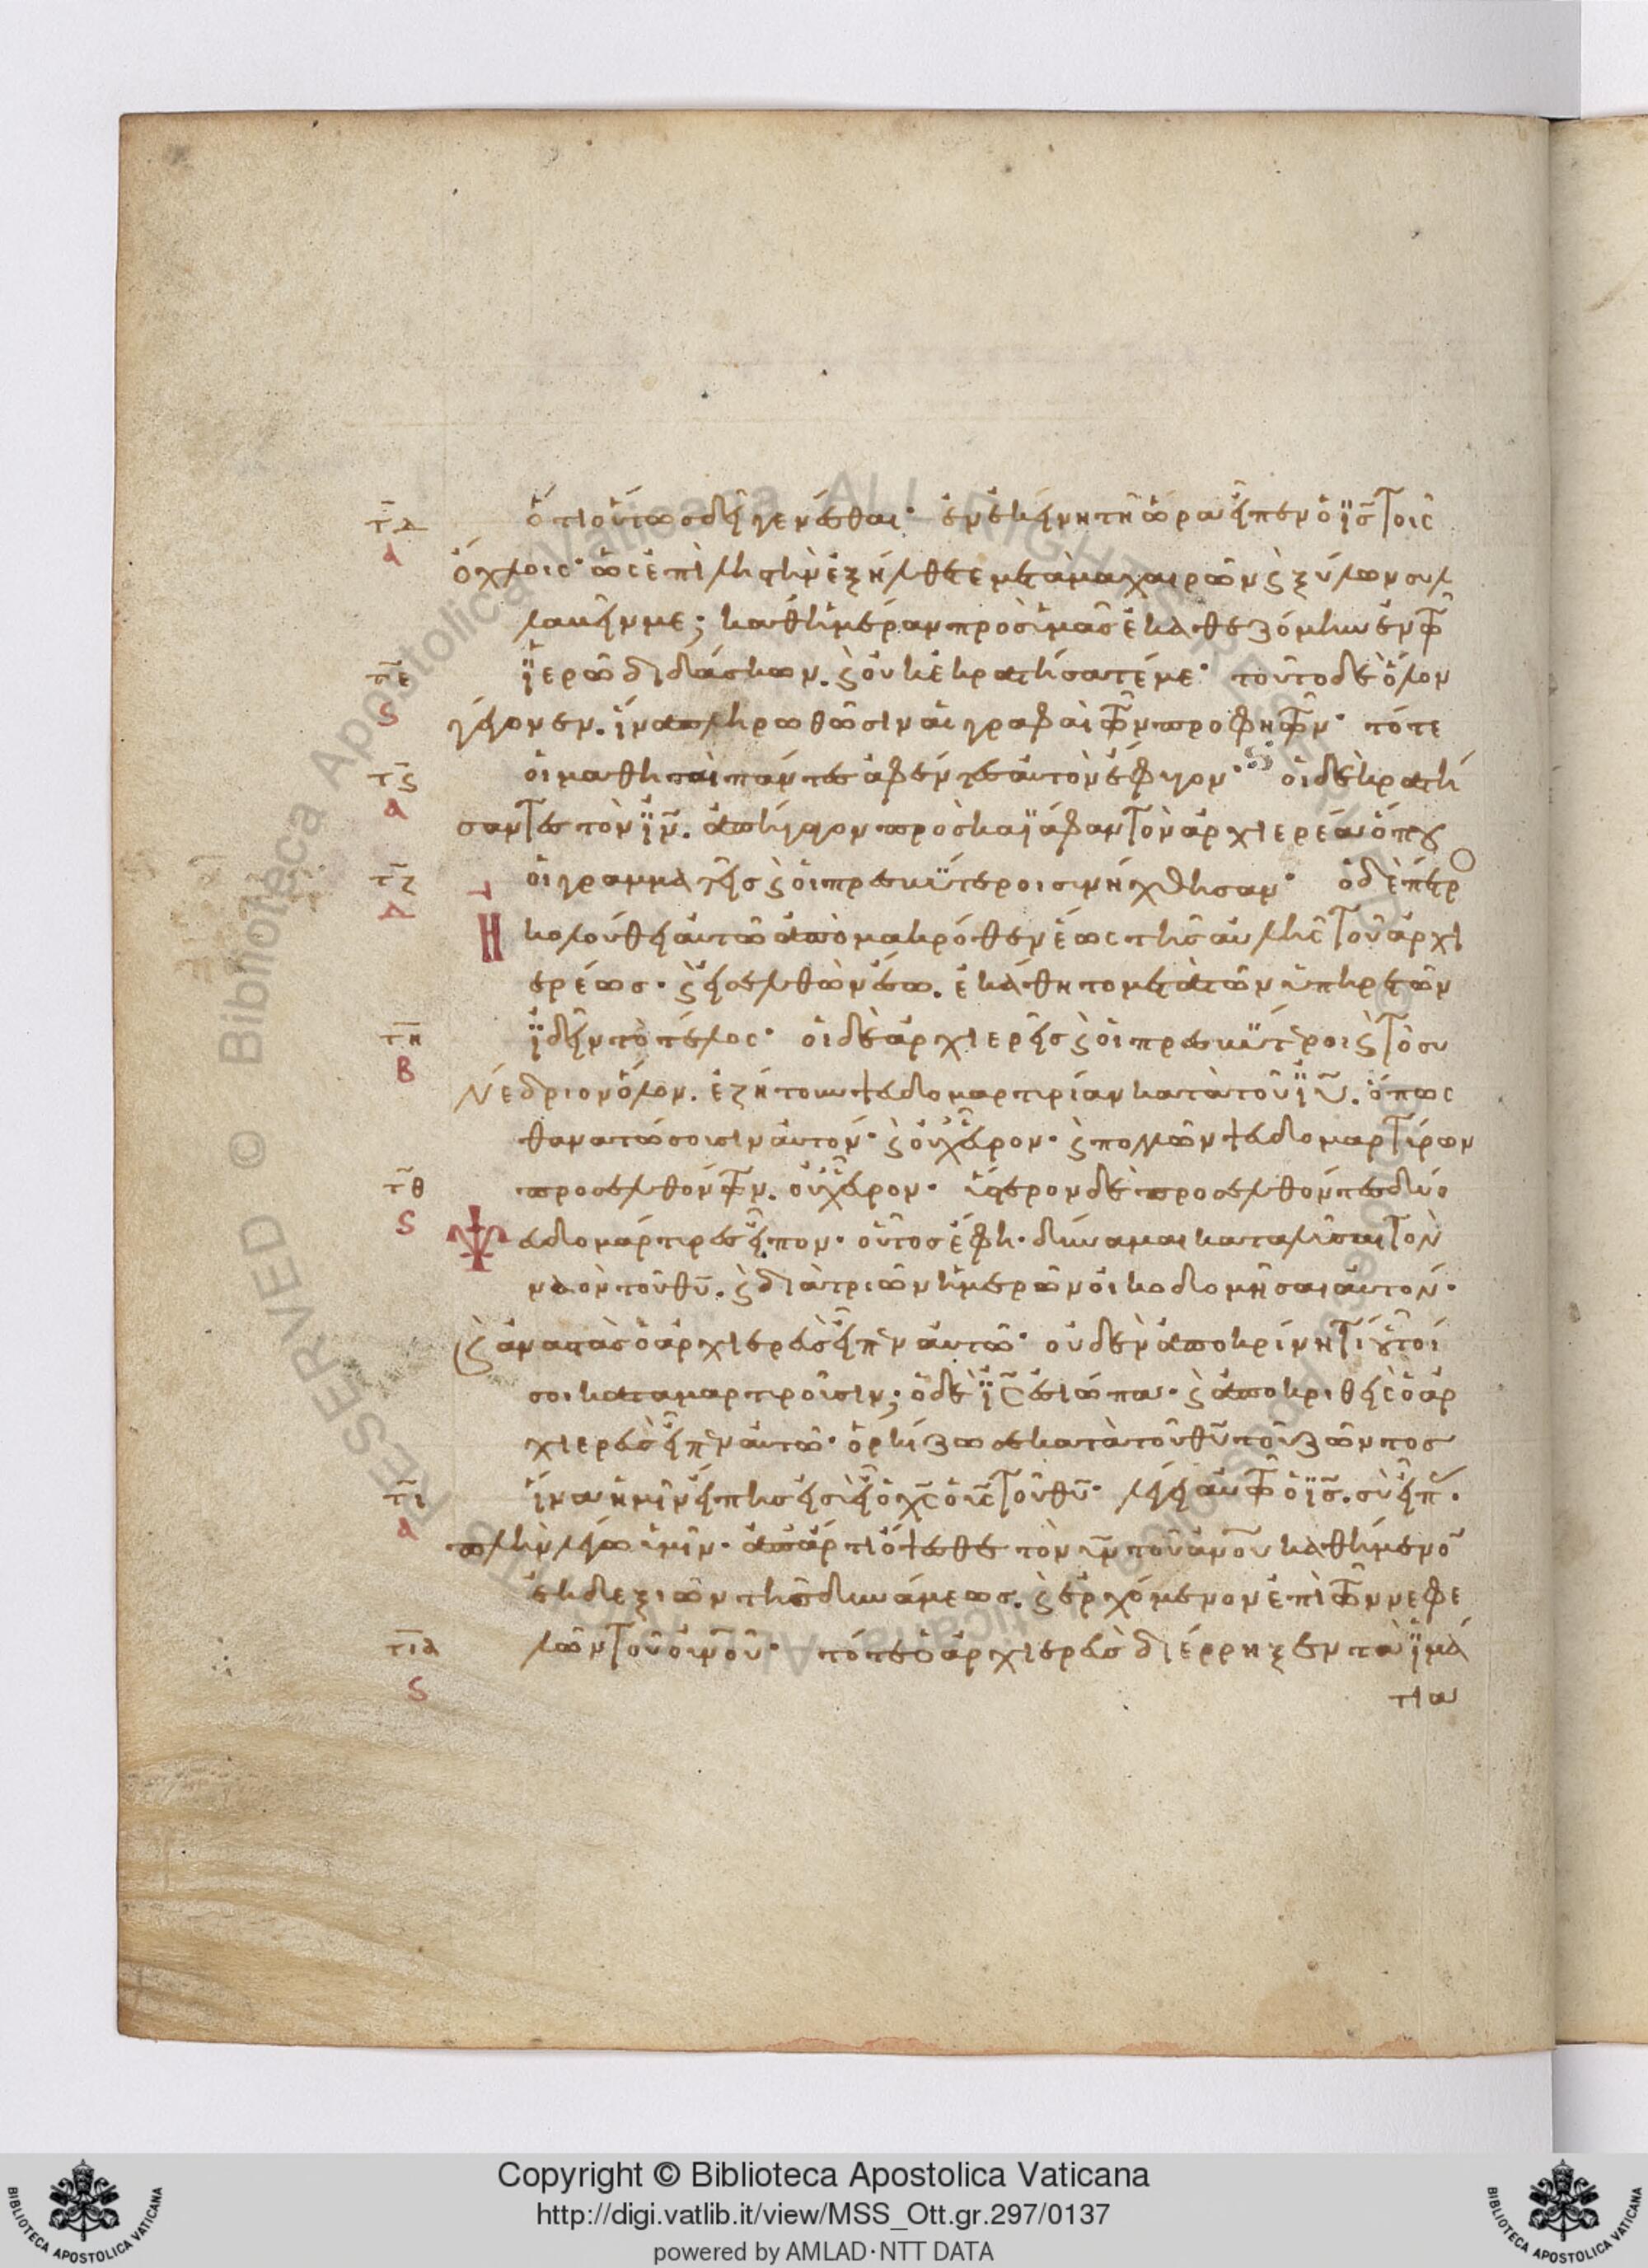 τ̅δ ὅτι οὕτως δεῖ γενέσθαι· ἐν ἐκείνη τῆ ὥρα εἶπεν ὁ ϊ̅ς̅ τοῖς
α ὄχλοις· ὡς ἐπὶ ληστὴν ἐξήλθετε μετὰ μαχαιρῶν ϗ ξύλων συλ
λαβεῖν με; καθημέραν πρὸς ὑμᾶς ἐκαθεζόμην ἐν τῶ
τ̅ε ἱερῶ διδάσκων. ϗ οὐκ ἐκρατήσατέ με· τοῦτο δὲ ὅλον
ς γέγονεν. ἵνα πληρωθῶσιν αἱ γραφαὶ τῶν προφητῶν· τότε
τ̅ς οἱ μαθηταὶ πάντες ἀφέντες αὐτὸν ἔφυγον· οἱ δὲ κρατή
α σαντες τὸν ϊ̅ν̅. ἀπήγαγον πρὸς καϊάφαν τὸν ἀρχιερέα ὅπου
τ̅ζ οἱ γραμματεῖς ϗ οἱ πρεσβύτεροι συνήχθησαν· ὁ δὲ πέτρο
Δ Η κολούθει αὐτῶ ἀπὸ μακρόθεν ἕως τῆς αὐλῆς τοῦ ἀρχι
ερέως· ϗ εἰσελθὼν ἔσω. ἐκάθητο μετὰ τῶν ὑπηρετῶν
τ̅η ἰδεῖν τὸ τέλος· οἱ δὲ ἀρχιερεῖς ϗ οἱ πρεσβύτεροι ϗ τὸ συ
Β νέδριον ὅλον. ἐζήτουν ψευδομαρτυρίαν κατὰ τοῦ ϊ̅υ̅. ὅπως
θανατώσουσιν αὐτόν· ϗ οὐχ εὗρον· ϗ πολλῶν ψευδομαρτύρων
τ̅θ προσελθόντων. οὐχ εὗρον· ὕστερον δὲ προσελθόντες δύο
ς Ψ ευδομάρτυρες εἶπον· οὗτος ἔφη· δύναμαι καταλῦσαι τὸν
ναὸν τοῦ θ̅υ̅. ϗ διὰ τριῶν ἡμερῶν οἰκοδομῆσαι αὐτόν·
ϗ ἀναστὰς ὁ ἀρχιερεὺς εἶπεν αὐτῶ· οὐδὲν ἀποκρίνη τί οὗτοί
σου καταμαρτυροῦσιν; ὁ δὲ ϊ̅ς̅ ἐσιώπα· ϗ ἀποκριθεὶς ὁ ἀρ
χιερεὺς εἶπεν αὐτῶ· ὁρκίζω σε κατὰ τοῦ θ̅υ̅ τοῦ ζῶντος
τ̅ι ἵνα ἡμῖν εἴπης εἰ σὺ εἶ ὁ χ̅ς̅ ὁ υ̅ς̅ τοῦ θ̅υ̅· λέγει αὐτῶ ὁ ϊ̅ς̅. σὺ εἶπ.
α πλὴν λέγω ὑμῖν· ἀπάρτι ὄψεσθε τὸν υ̅ν̅ τοῦ ἀ̅ν̅ο̅υ̅ καθήμενο̅
ἐκ δεξιῶν τῆς δυνάμεως. ϗ ἐρχόμενον ἐπὶ τῶν νεφε
τ̅ι̅α λῶν τοῦ οὐ̅ν̅ο̅ῦ̅· τότε ὁ ἀρχιερεὺς διέρρηξεν τὰ ϊμά
ς τια
Copyright © Biblioteca Apostolica Vaticana
http://digi.vatlib.it/view/MSS_Ott.gr.297/0137
powered by AMLAD·NTT DATA